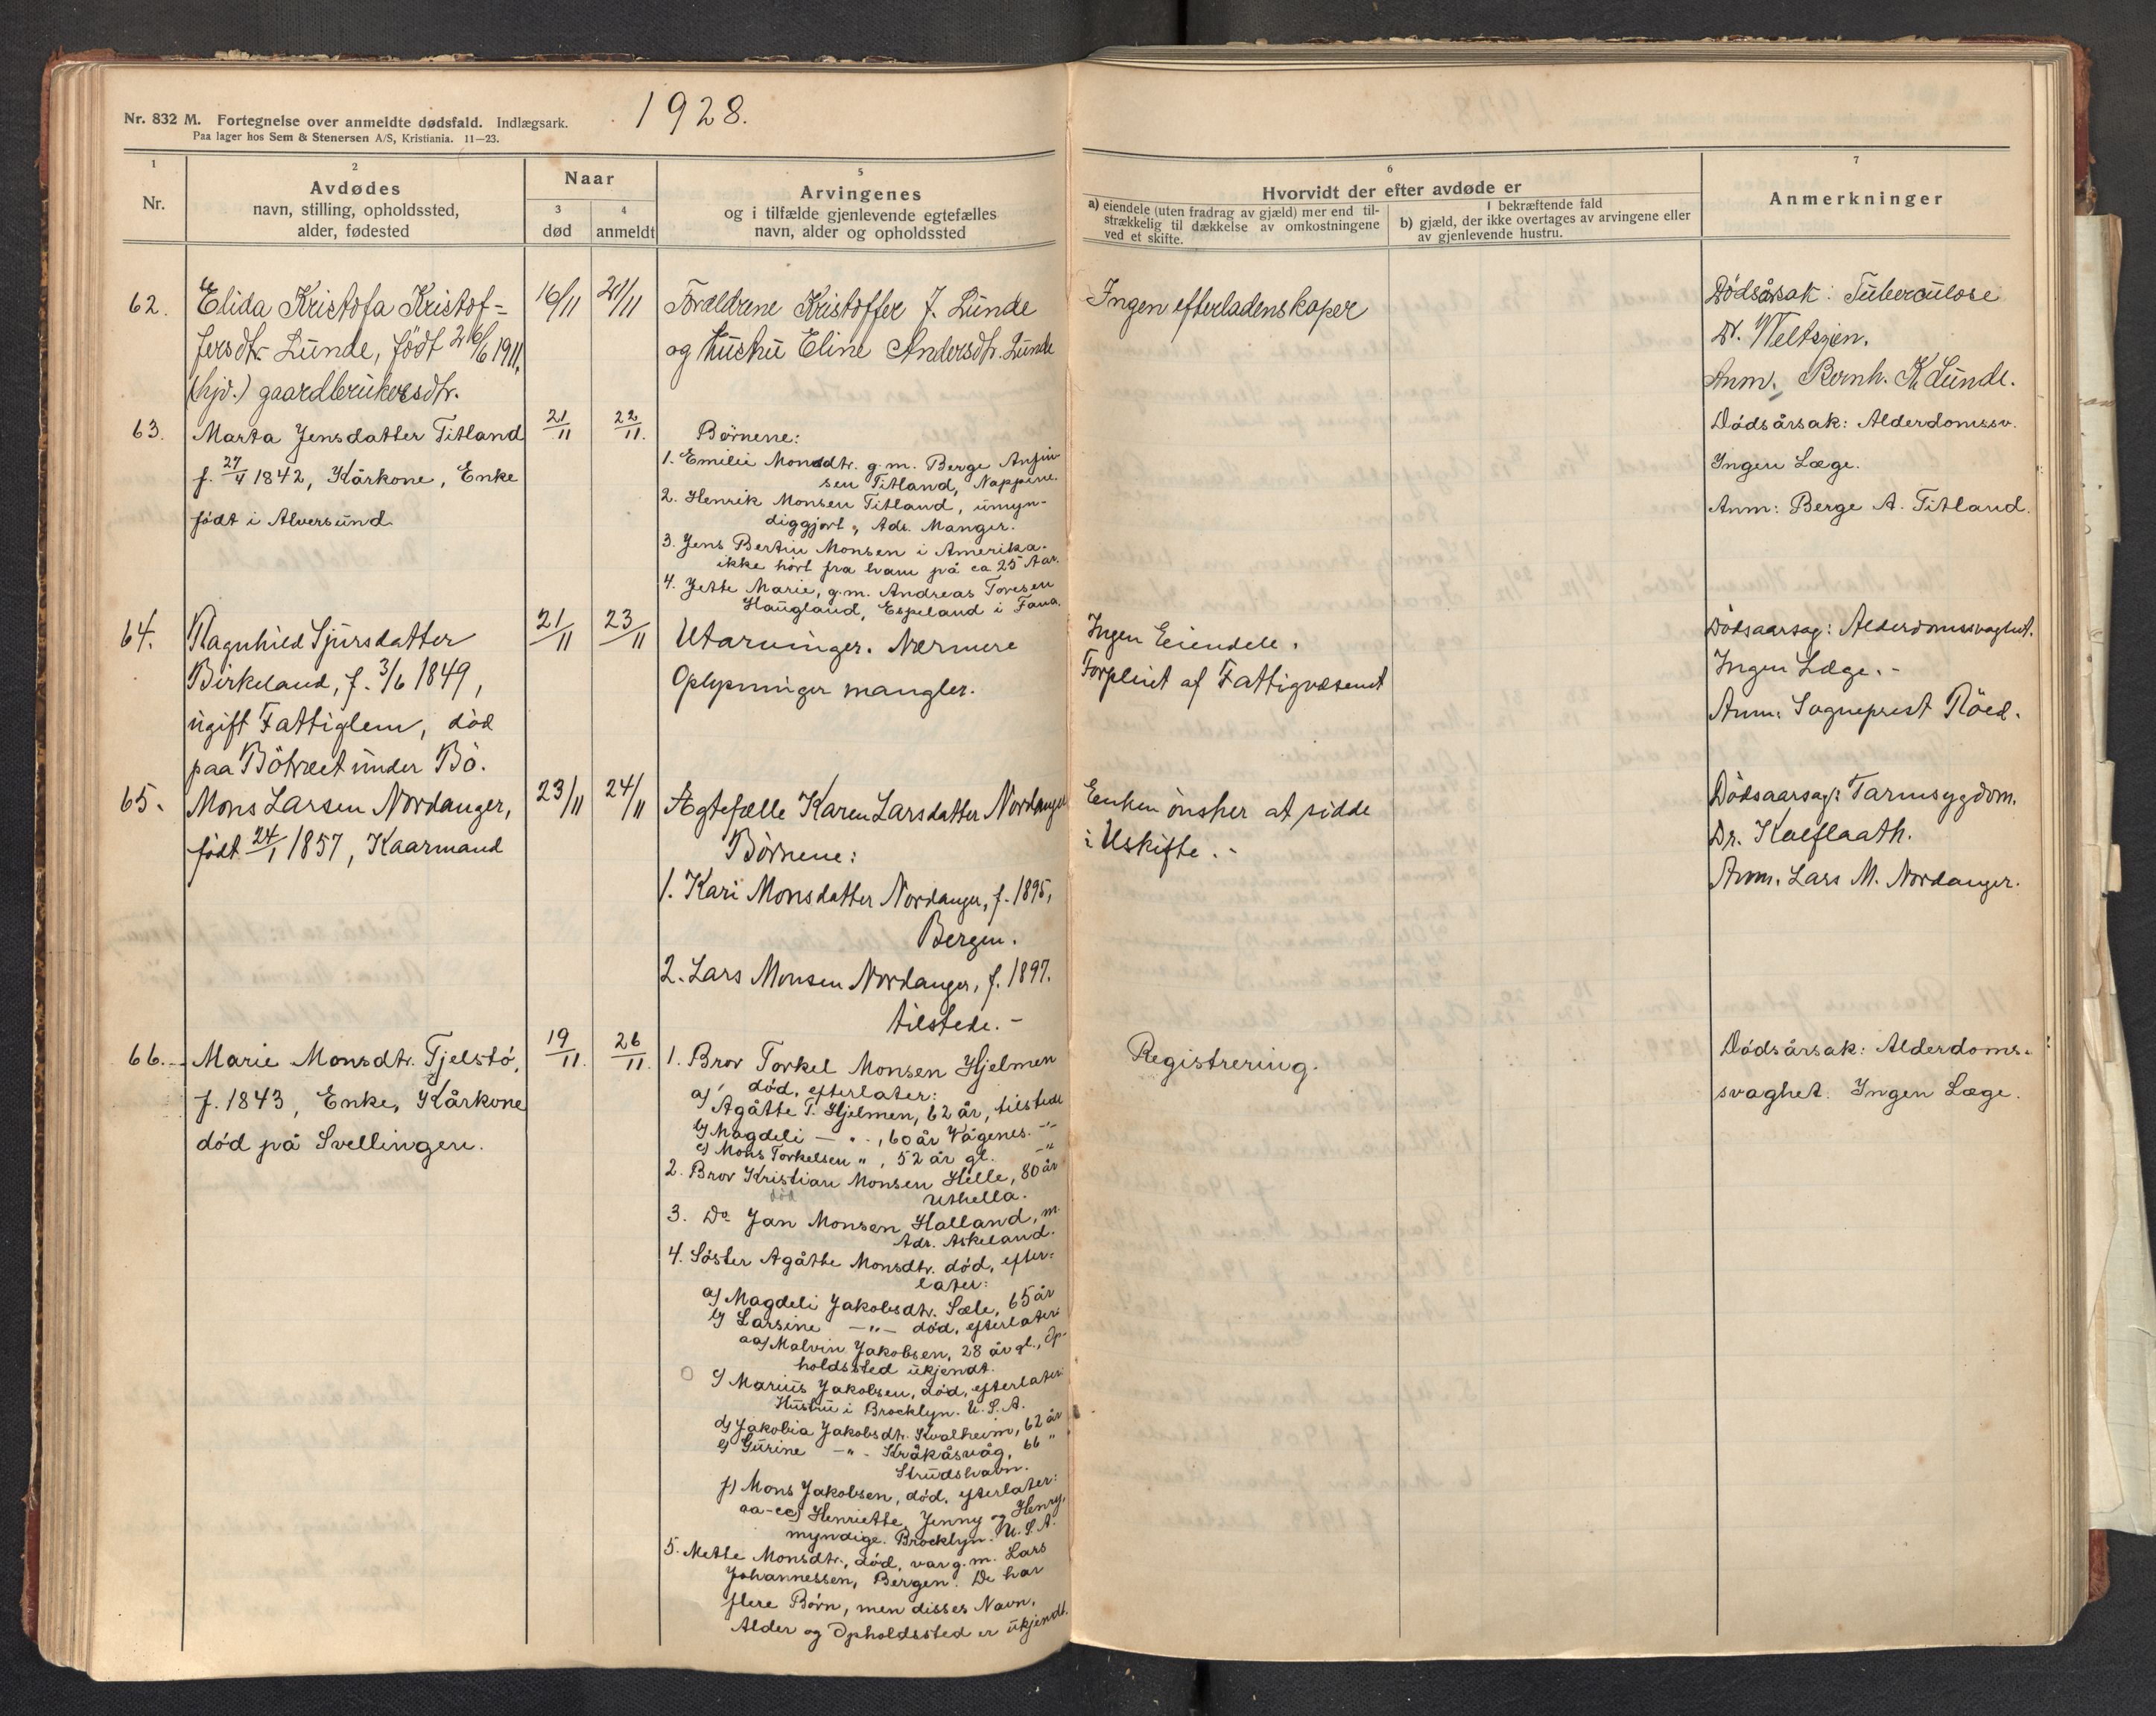 Nr. 832 M. Fortegnelse over anmeldte dødsfald. Indlægsark.
Paa lager hos Sem & Stenersen A/S, Kristiania. 11—23.
1928.
1
Nr.
2
Avdødes
navn, stilling, opholdssted,
alder, fødested
Naar
3
død
4
anmeldt
5
Arvingenes
og i tilfælde gjenlevende egtefælles
navn, alder og opholdssted
6
Hvorvidt der efter avdøde er
a) eiendele (uten fradrag av gjæld) mer end til-
strækkelig til dækkelse av omkostningene
ved et skifte.
I bekræftende fald
b) gjæld, der ikke overtages av arvingene eller
av gjenlevende hustru.
7
Anmerkninger
62.
Elida Kristofa Kristof-
fersdtr. Lunde, født 26/6 1911,
(hjv.) gaardbrukersdtr.
16/11
21/11
Forældrene Kristoffer J. Lunde
og hustru Eline Andersdtr. Lunde
Ingen efterladenskaper
Dödsårsak: Tuberculose
Dr.
Anm. Bernh. K Lunde.
63.
Marta Jensdatter Titland
f. 27/4 1842, Kårkone, Enke
født i Alversund.
21/11
22/11.
Børnene:
1. Emilie Monsdtr. g.m. Berge Anfin-
sen Titland, Nappine.
2. Henrik Monsen Titland, umyn-
diggjort, Adr. Manger.
3. Jens Bertin Monsen i Amerika.
ikke hört fra ham på ca 25 Aar.
4. Jette Marie, g.m. Andreas Toresen
Haugland, Espeland i Fana.
Dødsårsak: Alderdomssv.
Ingen Læge.
Anm: Berge A. Titland.
64.
Ragnhild Sjursdatter
Birkeland, f. 3/6 1849,
ugift Fattiglem, död
paa Bötræet under Bö.
21/11
23/11
Utarvinger. Nærmere
Oplysninger mangler.
Ingen Eiendele.
Forpleiet af Fattigvæsenet
Dödsaarsag: Alderdomssvaghet.
Ingen Læge. -
Anm: Sogneprest Röed.
65.
Mons Larsen Nordanger,
född 24/1 1857, Kaarmand
23/11
24/11
Ægtefælle Karen Larsdatter Nordanger
Børnene:
1. Kari Monsdatter Nordanger, f. 1895,
Bergen.
2. Lars Monsen Nordanger, f. 1897.
tilstede. -
Enken önsker at sidde
i Uskifte. -
Dödsaarsag: Tarmsygdom.
Dr. Kalflaath.
Anm. Lars M. Nordanger.
66.
Marie Monsdtr. Tjelstö,
f. 1843, Enke, Kårkone
död på Svellingen.
19/11.
26/11.
1. Bror Torkel Monsen Hjelmen
död, efterlater:
a) Agåthe T. Hjelmen, 62 år, tilstede
b) Magdeli — " - , 60 år Vågenes. -"-
c) Mons Torkelsen " , 52 år gl. -"
2. Bror Kristian Monsen Helle, 80 år
død Uthella.
3. Do Jan Monsen Halland, m.
Adr. Askeland.
4. Söster Agåthe Monsdtr. död, efter-
later:
a) Magdeli Jakobsdtr. Sæle, 65 år
b) Larsine —"— död, efterlater:
aa) Malvin Jakobsen, 28 år gl., Op-
holdssted ukjendt.
c) Marius Jakobsen, död, efterlater
Hustru i Brocklyn. U. S. A.
d) Jakobia Jakobsdtr. Kvalheim, 62 år
e) Gurine —"- Kråkåsvåg, 66 "
Strudshavn.
f) Mons Jakobsen, död, efterlater:
aa-cc) Henriette, Jenny og Henry,
myndige. Brocklyn. U. S. A.
5. Mette Monsdtr., död, var g. m. Lars
Johannessen, Bergen. De har
flere Börn, men disses Navn,
Alder og Opholdssted er ukjendt.
Registrering.
Dödsårsak: Alderdoms-
svaghet. Ingen Læge.